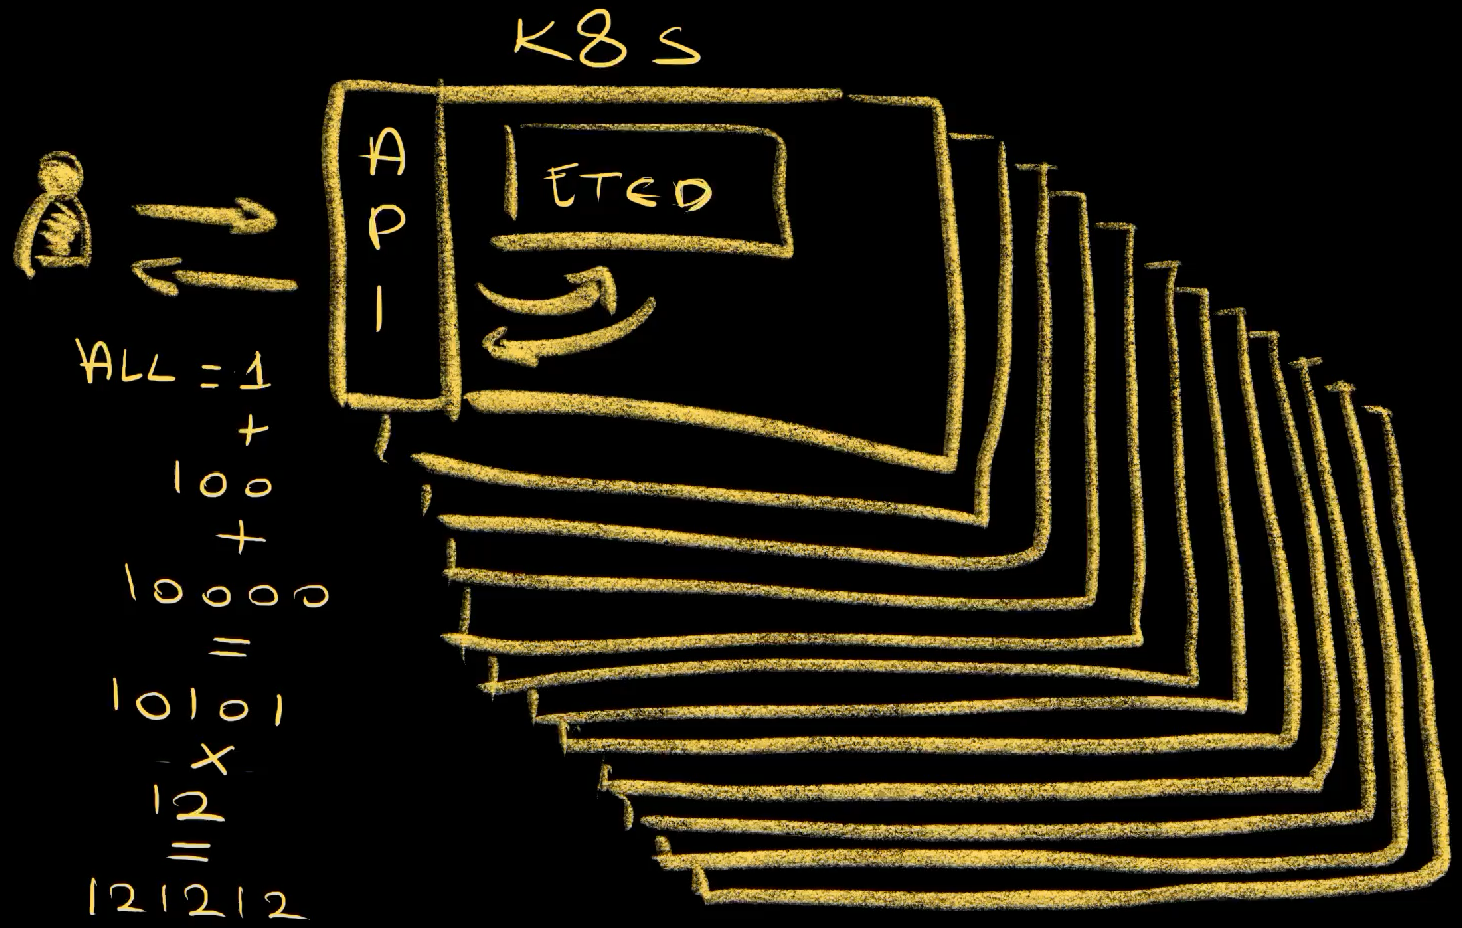 K8S
API
ETCD
ALL = 1
+
100
+
10000
=
10101
x
12
=
121212